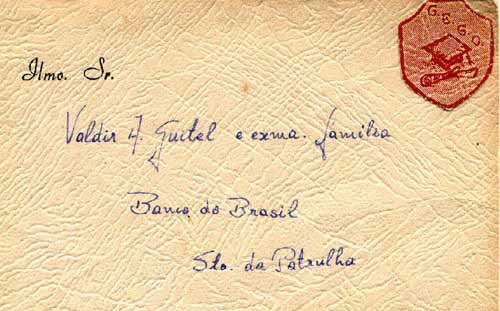 G.E.G.O
Ilmo. Sr.
Valdir A. Guitel e exma. família
Banco do Brasil
Sto. da Patrulha